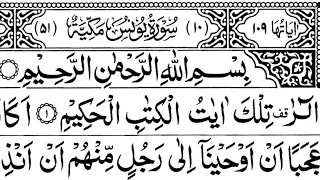 اٰیَاتُهَا ۱۰۹ (۱۰) سُوْرَةُ یُوْنُسَ مَكِّیَّةٌ (۵۱)
بِسْمِ اللّٰهِ الرَّحْمٰنِ الرَّحِیْمِ
الٓرٰ قف تِلْكَ اٰیٰتُ الْكِتٰبِ الْحَكِیْمِ ۝۱ اَكَانَ
عَجَبًا اَنْ اَوْحَیْنَاۤ اِلٰى رَجُلٍ مِّنْهُمْ اَنْ اَنْذِ